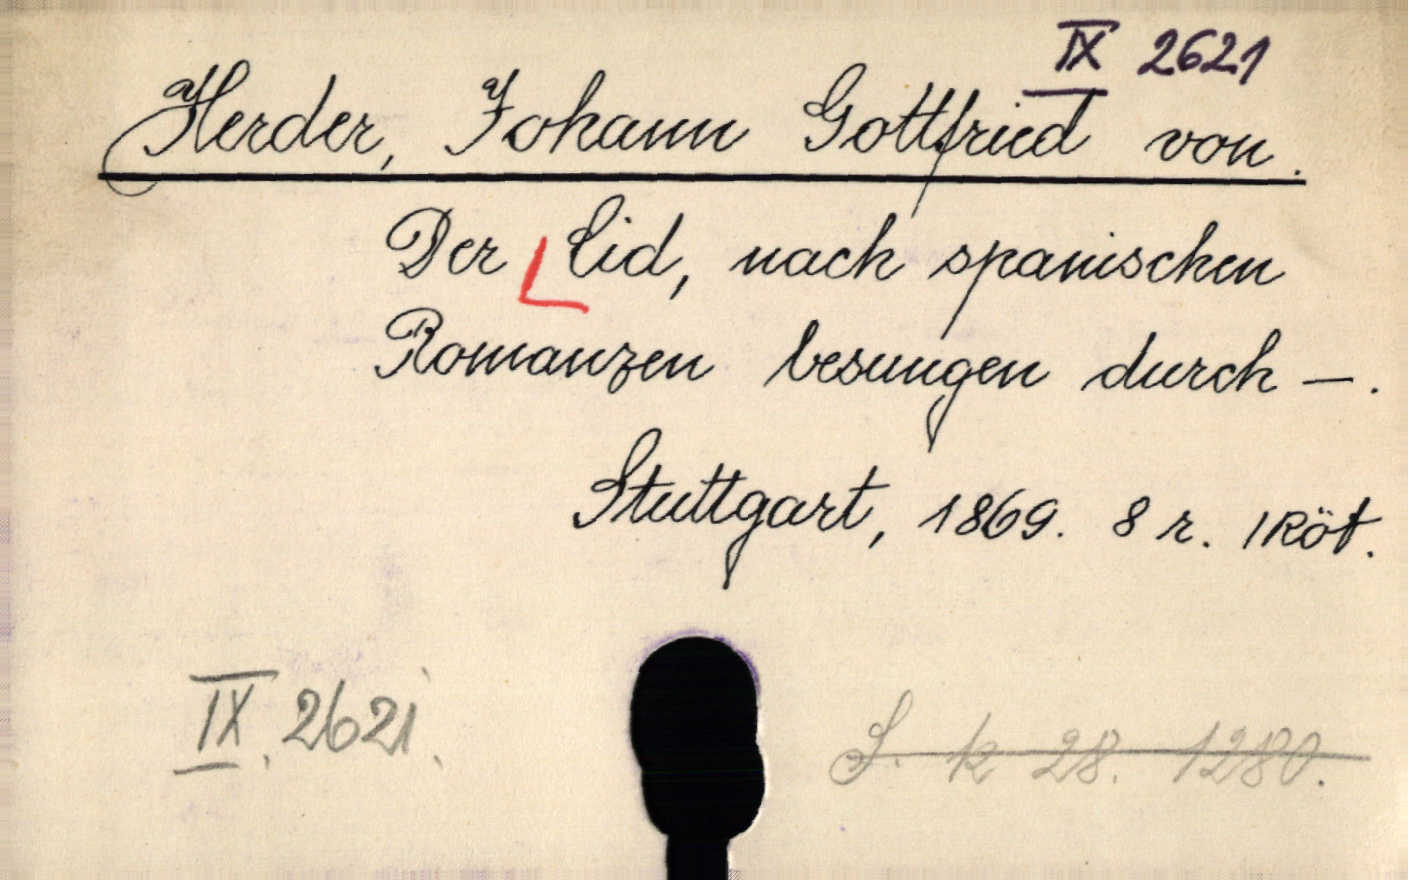 IX 2621
Herder, Johann Gottfried von.
Der Cid, nach spanischen
Romanzen besungen durch —.
Stuttgart, 1869. 8 r. 1 Köt.
IX. 2621.
S. k 28. 1280.